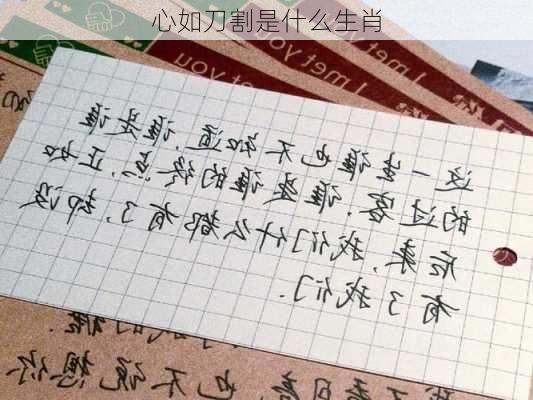 心如刀割是什么生肖
I met you
I met you
这一生谁也不知道,谁是谁
的过客,谁是谁的终点,正如
后来,我们什么都有了,却没
有了我们.